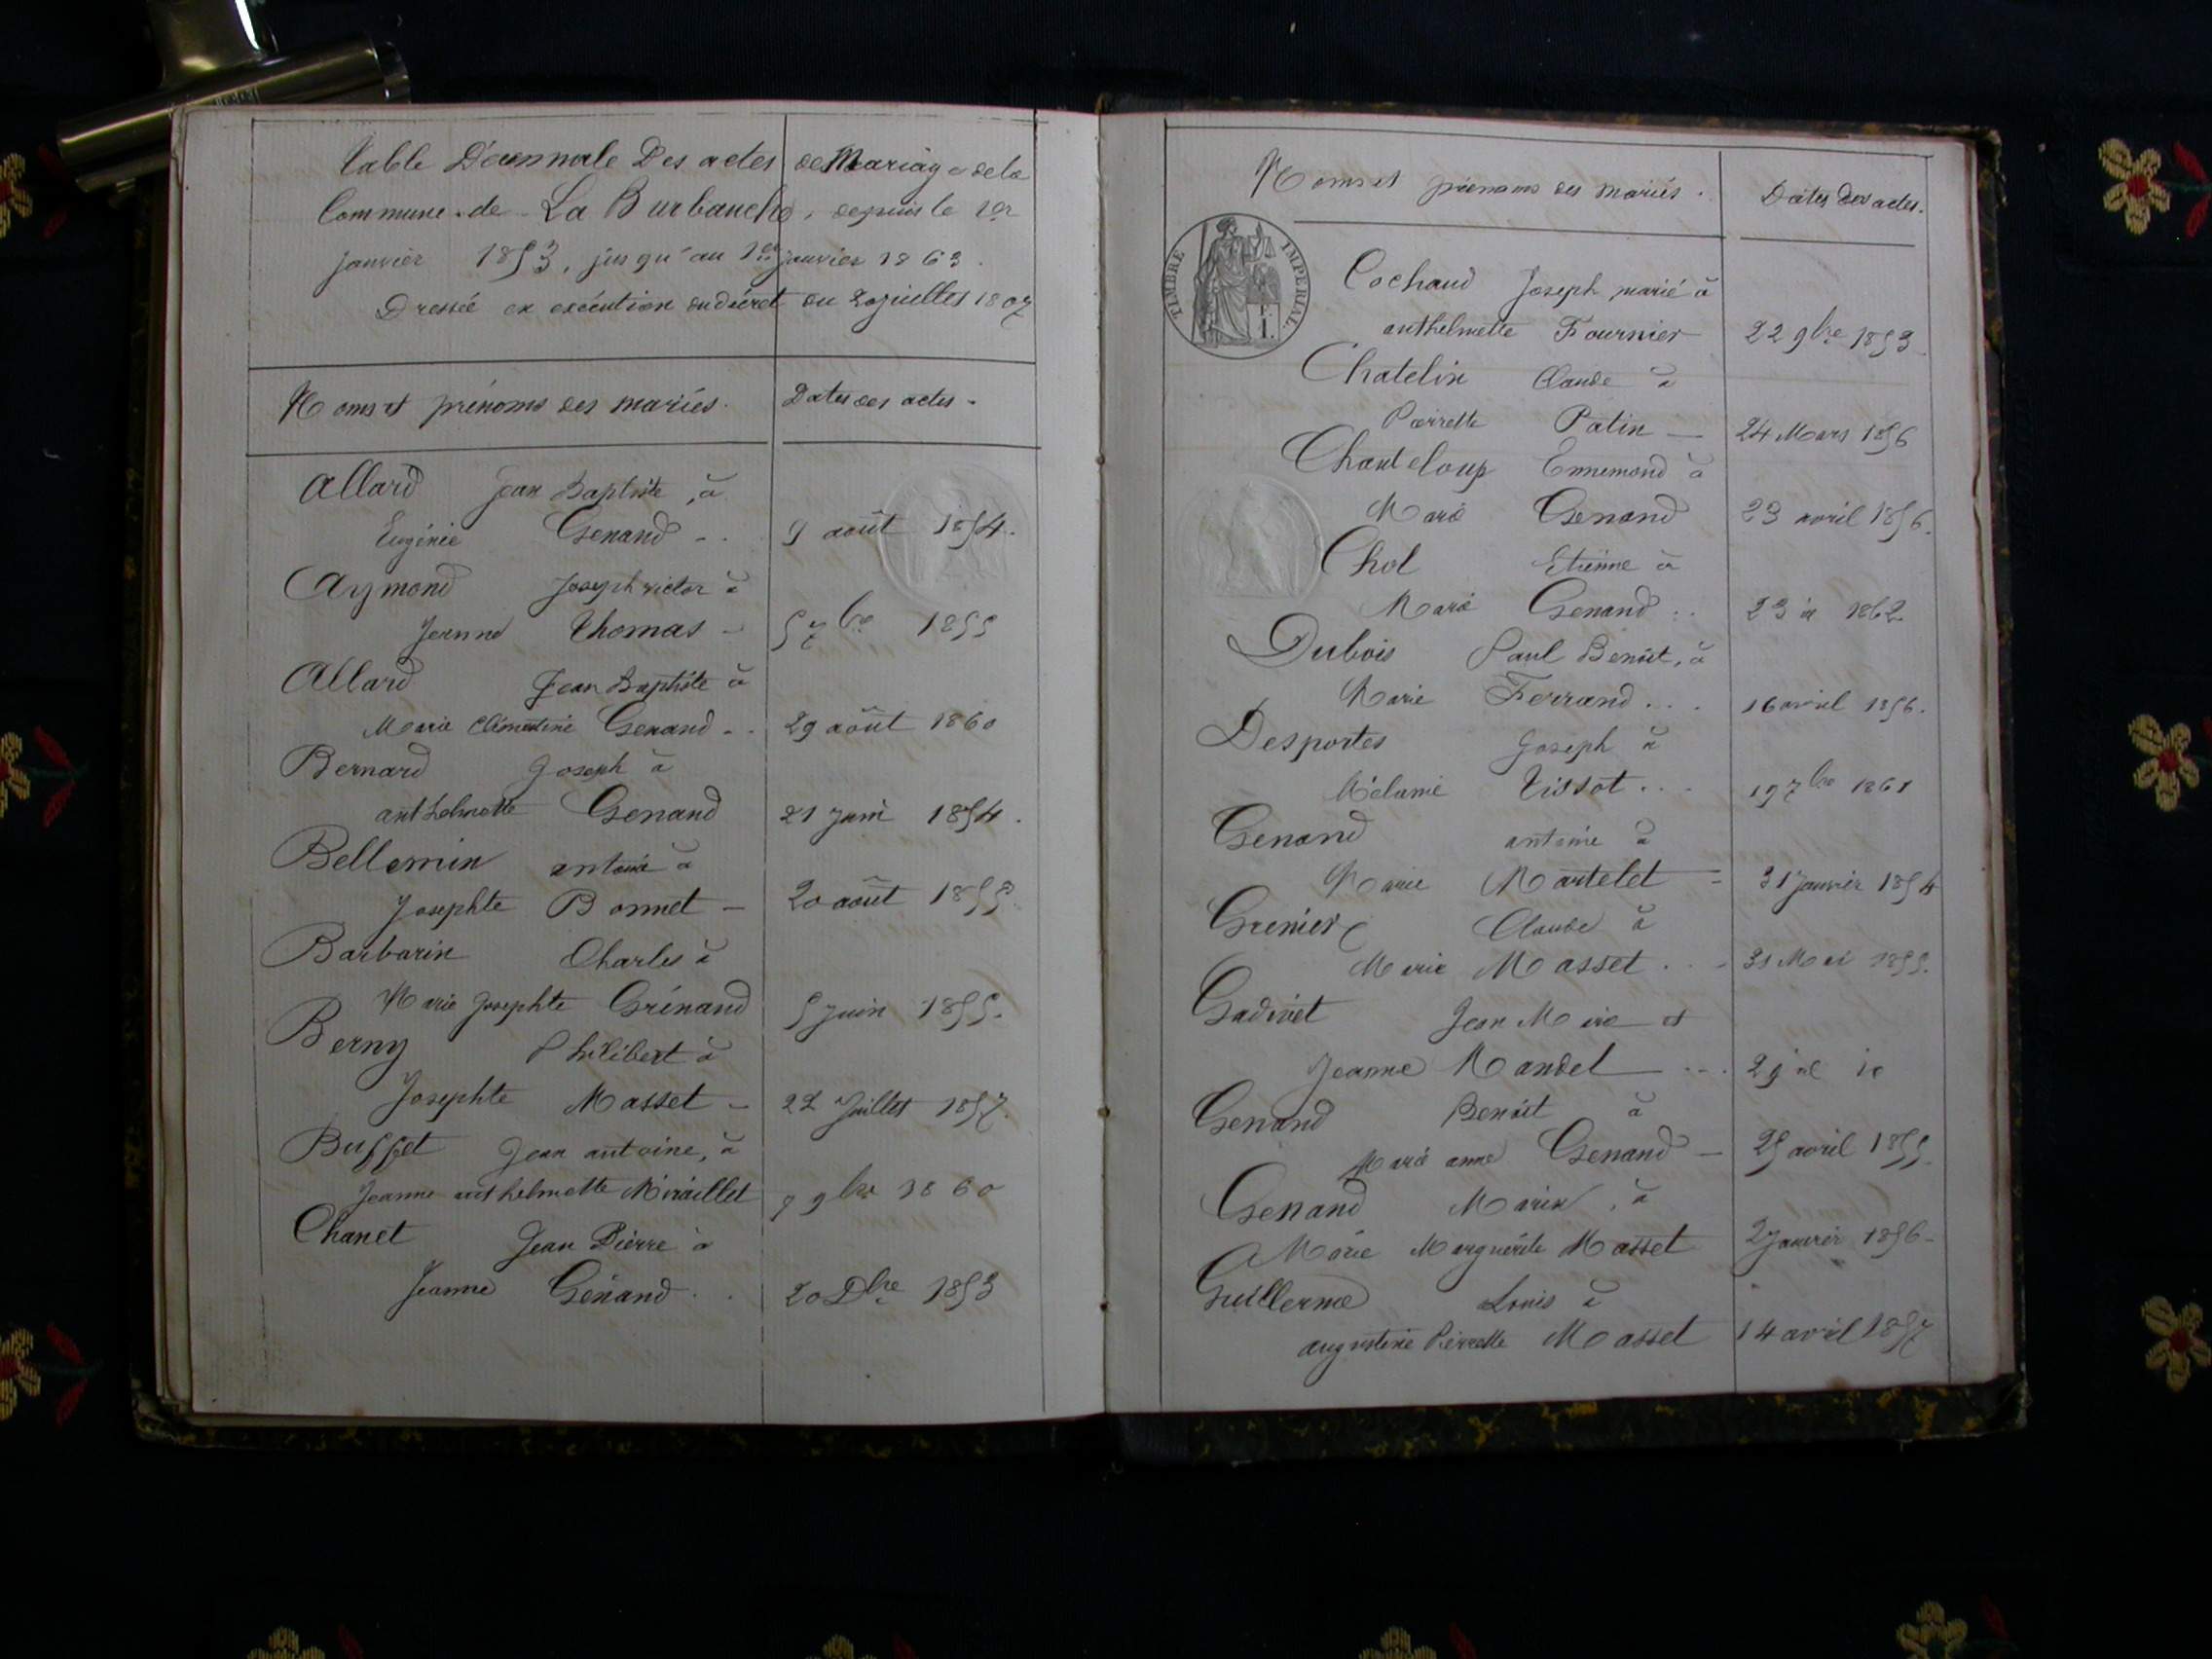 Table Décennale Des actes de Mariage de la
Commune de La Burbanche, depuis le 1er
janvier 1853, jusqu'au 1er janvier 1863.
Dressée en exécution du décret du 20 juillet 1807
Noms et prénoms des mariés. Dates des actes.
Allard Jean Baptiste, à
Eugénie Genand 9 août 1854.
Aymond Joseph victor à
Jeanne Thomas 5 7bre 1855
Allard Jean Baptiste à
Marie Clémentine Genand 29 août 1860
Bernard Joseph à
anthelmette Genand 21 Juin 1854.
Bellemin antoine à
Josephte Bonnet 20 août 1855
Barbarin Charles à
Marie Josephte Grénand 5 Juin 1855.
Berny Philibert à
Josephte Masset 22 Juillet 1857.
Buffet Jean antoine, à
Jeanne anthelmette Miraillet 9bre 1860
Chanet Jean Pierre à
Jeanne Génand 20 Dbre 1853
Noms et prénoms des mariés. Dates des actes.
TIMBRE IMPERIAL.
Cochaud Joseph marié à
anthelmette Fournier 22 9bre 1853
Chatelin Claude à
Pierrette Patin 24 Mars 1856
Chanteloup Ennemond à
Marie Genand 23 avril 1856.
Chol Etienne à
Marie Genand 23 1862
Dubois Paul Benoit, à
Marie Ferrand 16 avril 1856.
Desportes Joseph à
Mélanie Tissot 19 7bre 1861
Genand antoine à
Marie Martelet 31 Janvier 1854
Grenier Claude à
Marie Masset 31 Mai 1855.
Gadinet Jean Marie et
Jeanne Mandel 29
Genand Benoit à
Marie anne Genand 25 avril 1855.
Genand Marin, à
Marie Marguérite Masset 2 Janvier 1856
Guillerme Louis à
augustine Pierrette Masset 14 avril 1857